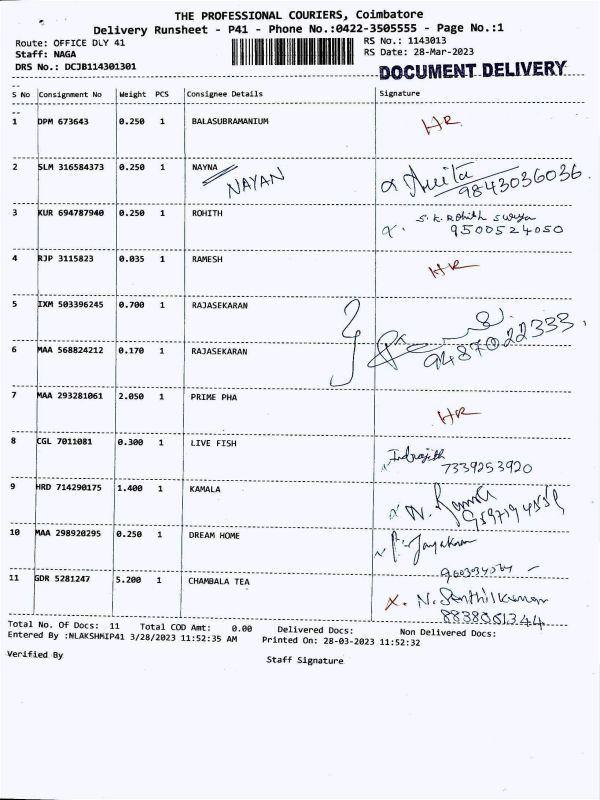 THE PROFESSIONAL COURIERS, Coimbatore
Delivery Runsheet - P41 - Phone No.:0422-3505555 - Page No.:1
Route: OFFICE DLY 41 RS No.: 1143013
Staff: NAGA RS Date: 28-Mar-2023
DRS No.: DCJB114301301
DOCUMENT DELIVERY
S No Consignment No Weight PCS Consignee Details Signature
1 DPM 673643 0.250 1 BALASUBRAMANIUM HR
2 SLM 316584373 0.250 1 NAYNA
NAYAN 9843036036
3 KUR 694787940 0.250 1 ROHITH S.K. Rohith
9500524050
4 RJP 3115823 0.035 1 RAMESH HR
5 IXM 503396245 0.700 1 RAJASEKARAN
9487022333
6 MAA 568824212 0.170 1 RAJASEKARAN
7 MAA 293281061 2.050 1 PRIME PHA HR
8 CGL 7011081 0.300 1 LIVE FISH Indrajith
7339253920
9 HRD 714290175 1.400 1 KAMALA
10 MAA 298920295 0.250 1 DREAM HOME
11 GDR 5281247 5.200 1 CHAMBALA TEA
x. N. Senthilkumar
8838061344
Total No. Of Docs: 11 Total COD Amt: 0.00 Delivered Docs: Non Delivered Docs:
Entered By :NLAKSHMIP41 3/28/2023 11:52:35 AM Printed On: 28-03-2023 11:52:32
Verified By Staff Signature